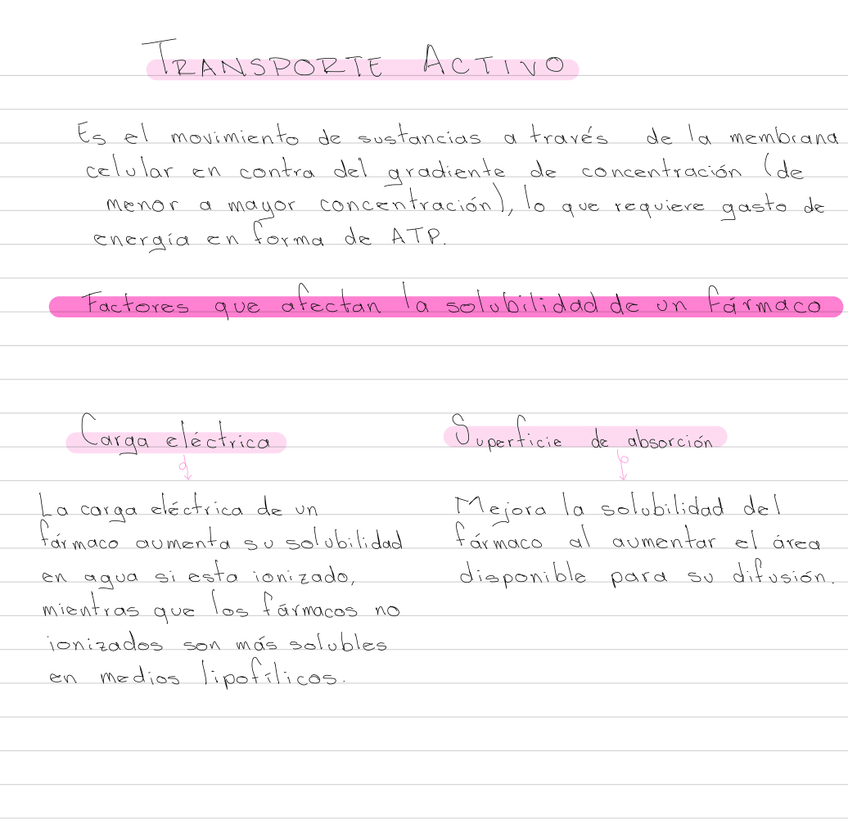 TRANSPORTE ACTIVO
Es el movimiento de sustancias a través de la membrana
celular en contra del gradiente de concentración (de
menor a mayor concentración), lo que requiere gasto de
energía en forma de ATP.
Factores que afectan la solubilidad de un fármaco
Carga eléctrica
La carga eléctrica de un
fármaco aumenta su solubilidad
en agua si esta ionizado,
mientras que los fármacos no
ionizados son más solubles
en medios lipofílicos.
Superficie de absorción
Mejora la solubilidad del
fármaco al aumentar el área
disponible para su difusión.